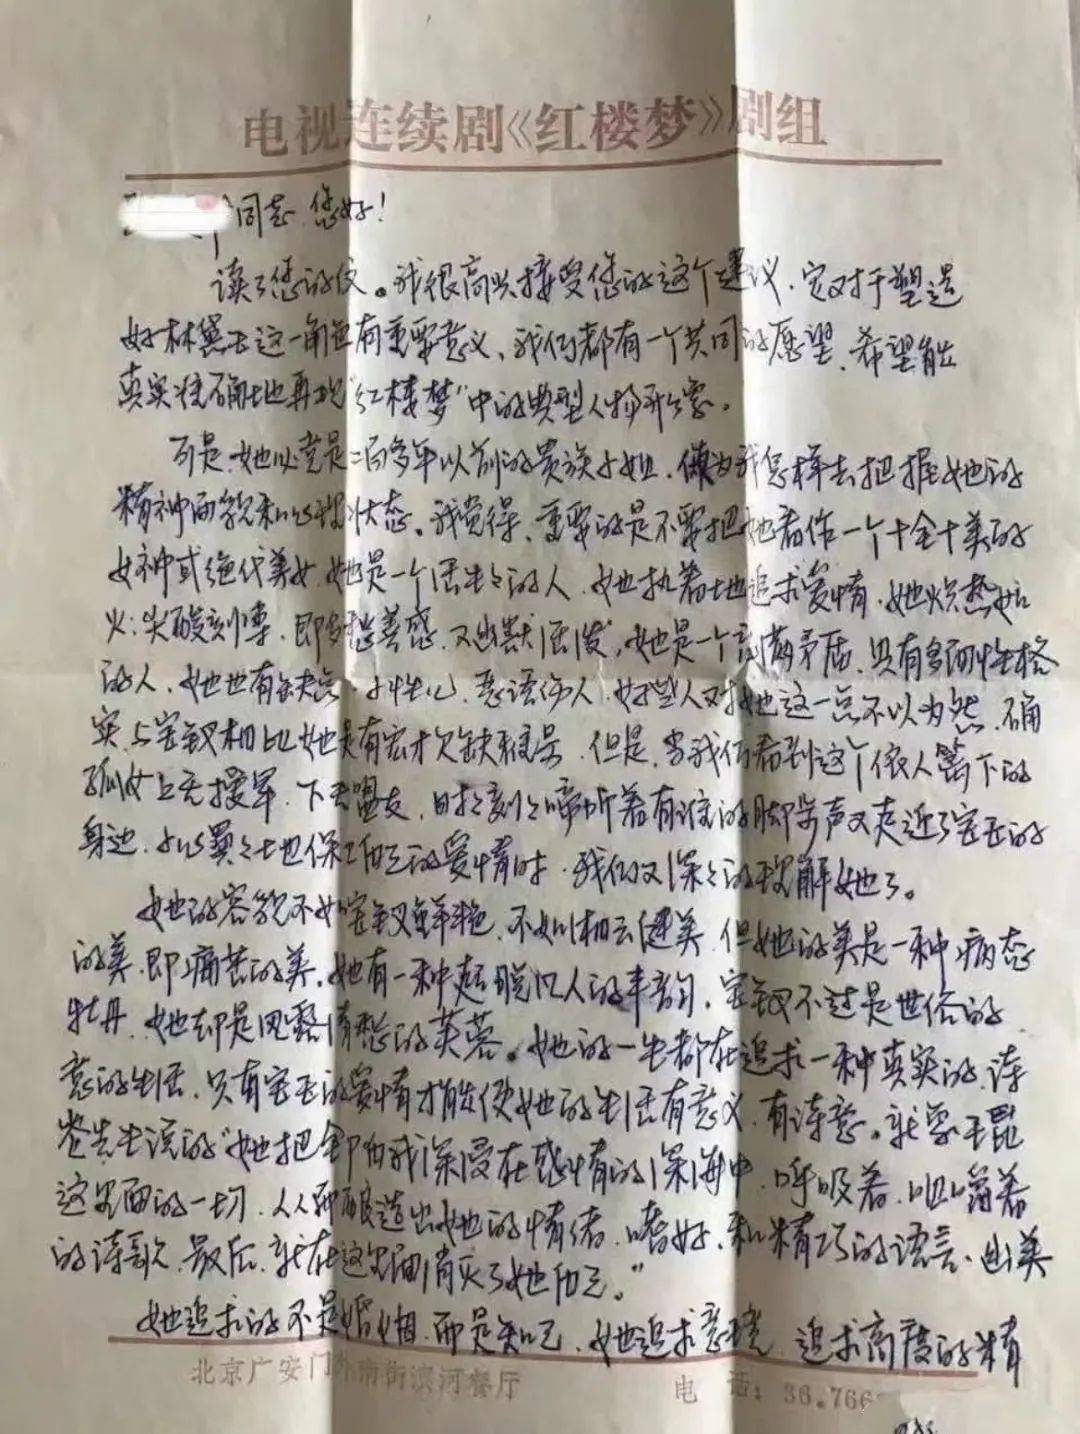 电视连续剧《红楼梦》剧组
同志,您好!
读了您的信。我很高兴接受您的这个建议,它对于塑造
好林黛玉这一角色有重要意义,我们都有一个共同的愿望,希望能
真实准确地再现"红楼梦"中的典型人物形象。
可是,她必竟是二百多年以前的贵族小姐,做为我怎样去把握她的
精神面貌和心理状态。我觉得,重要的是不要把她看作一个十全十美的
女神或绝代美女,她是一个活生生的人,她执着地追求爱情,她炽热如
火;尖酸刻薄,即多愁善感,又幽默活泼,她是一个充满矛盾,具有多面性格
的人,她也有缺点,小性儿,恶语伤人,好些人对她这一点不以为然,确
实,与宝钗相比她是有宏才欠缺 但是,当我们看到这个依人篱下的
孤女上无援军,下无盟友,时时刻刻啼听着有谁的脚步声又走近了宝玉的
身边,小心翼翼地保卫自己的爱情时,我们又深深的理解她了。
她的容貌不如宝钗鲜艳,不如湘云健美,但她的美是一种病态
的美,即痛苦的美,她有一种超脱凡人的丰韵,宝钗不过是世俗的
牡丹,她却是风露清愁的芙蓉。她的一生都在追求一种真实的,诗
意的生活,只有宝玉的爱情才能使她的生活有意义,有诗意。就象王昆
仑先生说的"她把全部自我深浸在感情的深海中,呼吸着,咀嚼着
这里面的一切,从而酿造出她的情绪,嗜好,和精巧的语言、幽美
的诗歌,最后,就在这里面消灭了她自己。"
她追求的不是婚姻,而是知己,她追求意境,追求高度的精
北京广安门外南街滨河餐厅 电 话:36.766